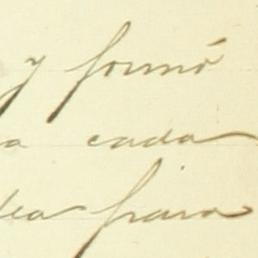 y formó
a cada
dea para